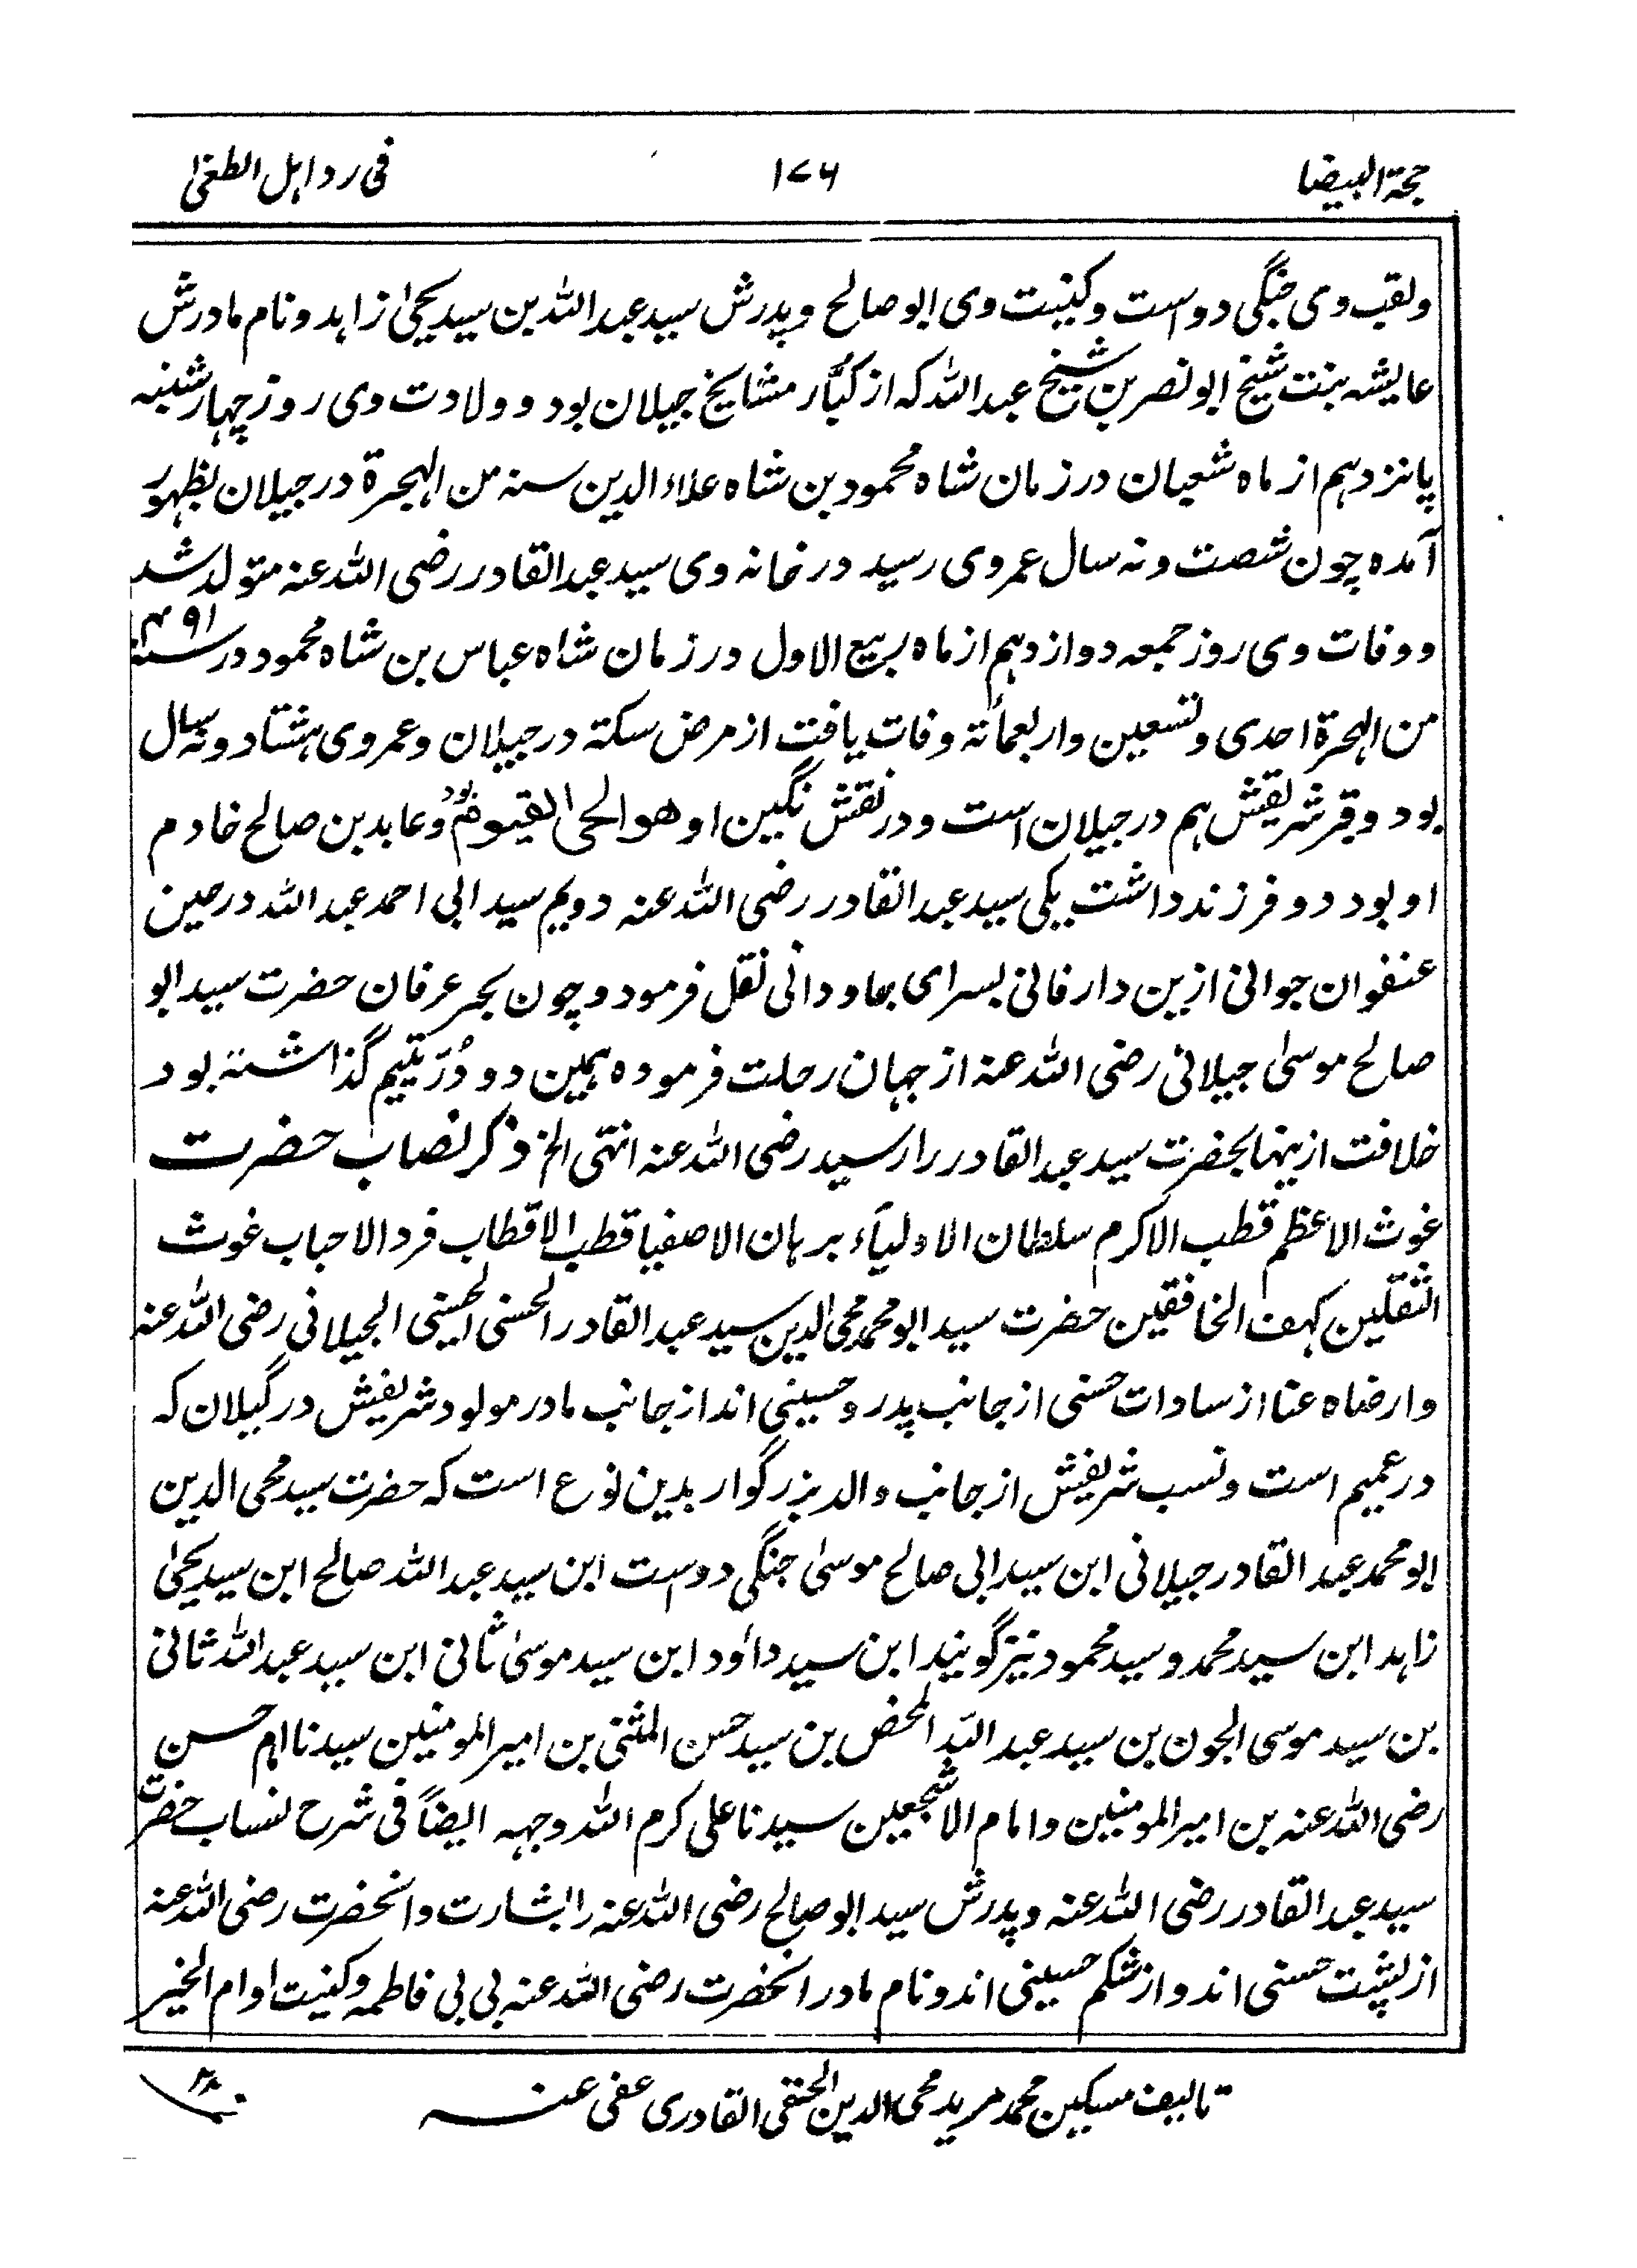 حجة البیضا ۱۷۶ فی رد اہل الطغیٰ
ولقب وی جنگی دوست وکنیت وی ابو صالح و پدرش سید عبد اللہ بن سید یحیٰ زاہد و نام مادرش
عایشہ بنت شیخ ابو نصر بن شیخ عبد اللہ کہ از کبّار مشایخ جیلان بود و ولادت وی روز چہار شنبہ
پانزدہم از ماہ شعبان در زمان شاہ محمود بن شاہ علاء الدین سنہ من الہجرة در جیلان بظہور
آمدہ چون شصت و نہ سال عمر وی رسید در خانہ وی سید عبد القادر رضی اللہ عنہ متولد شد
و وفات وی روز جمعہ دوازدہم از ماہ ربیع الاول در زمان شاہ عباس بن شاہ محمود در سنہ ۴۹۱
من الہجرة احدی وتسعین واربعمأتة وفات یافت از مرض سکتة در جیلان و عمر وی ہشتاد و نہ سال
بود و قبر شریفش ہم در جیلان است و در نقش نگین او ھو الحی القیوم بود و عابد بن صالح خادم
او بود دو فرزند داشت یکی سید عبد القادر رضی اللہ عنہ دویم سید ابی احمد عبد اللہ در حین
عنفوان جوانی ازین دار فانی بسرای جاودانی نقل فرمود و چون بحر عرفان حضرت سید ابو
صالح موسیٰ جیلانی رضی اللہ عنہ از جہان رحلت فرمودہ ہمین دو دُرّ یتیم گذاشتہ بود
خلافت ازینہا بحضرت سید عبد القادر را رسید رضی اللہ عنہ انتہی الخ ذکر نصاب حضرت
غوث الاعظم قطب الاکرم سلطان الاولیآء برہان الاصفیا قطب الاقطاب فرد الاحباب غوث
الثقلین کہف الخافقین حضرت سید ابو محمد محی الدین سید عبد القادر الحسنی الحسینی الجیلانی رضی اللہ عنہ
وارضاہ عنا از سادات حسنی از جانب پدر و حسینی اند از جانب مادر مولود شریفش در گیلان کہ
در عمیم است و نسب شریفش از جانب والد بزرگوار بدین نوع است کہ حضرت سید محی الدین
ابو محمد عبد القادر جیلانی ابن سید ابی صالح موسیٰ جنگی دوست ابن سید عبد اللہ صالح ابن سید یحیٰ
زاہد ابن سید محمد و سید محمود نیز گویند ابن سید داؤد ابن سید موسیٰ ثانی ابن سید عبد اللہ ثانی
بن سید موسی الجون بن سید عبد اللہ المحض بن سید حسن المثنی بن امیر المومنین سیدنا امام حسن
رضی اللہ عنہ بن امیر المومنین و امام الاشجعین سیدنا علی کرم اللہ وجہہ ایضاً فی شرح نساب حضرت
سید عبد القادر رضی اللہ عنہ و پدرش سید ابو صالح رضی اللہ عنہ را بشارت و انحضرت رضی اللہ عنہ
از پشت حسنی اند و از شکم حسینی اند و نام مادر انحضرت رضی اللہ عنہ بی بی فاطمہ و کنیت او ام الخیر
تالیف مسکین محمد مرید محی الدین الحنفی القادری عفی عنہ